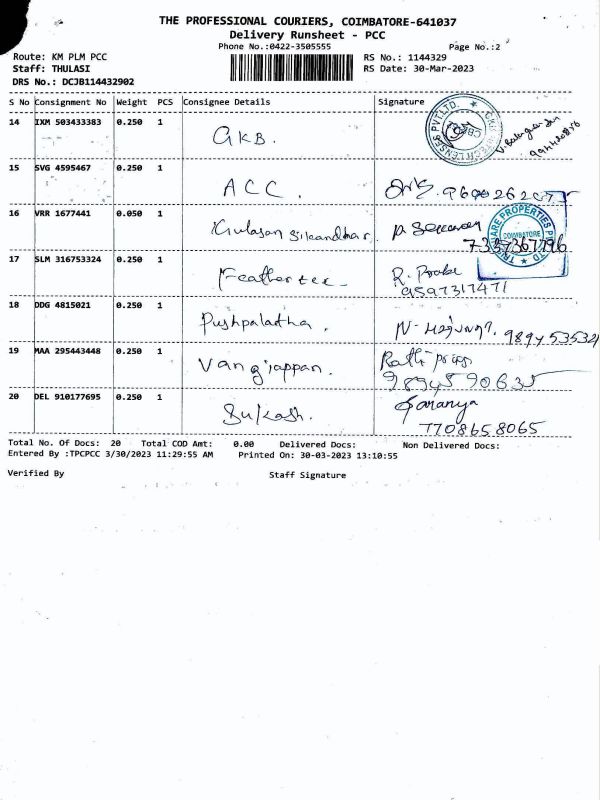 THE PROFESSIONAL COURIERS, COIMBATORE-641037
Delivery Runsheet - PCC
Phone No.:0422-3505555 Page No.:2
Route: KM PLM PCC RS No.: 1144329
Staff: THULASI RS Date: 30-Mar-2023
DRS No.: DCJB114432902
S No Consignment No Weight PCS Consignee Details Signature
14 IXM 503433383 0.250 1 GKB.
15 SVG 4595467 0.250 1 ACC.
16 VRR 1677441 0.050 1 Gulasan Sikandhar.
COIMBATORE
7337367796
17 SLM 316753324 0.250 1 Feather tex
9597317471
18 DDG 4815021 0.250 1 Pushpalatha.
19 MAA 295443448 0.250 1 Vangiappan.
9894590635
20 DEL 910177695 0.250 1 Sukash. Saranya
7708658065
Total No. Of Docs: 20 Total COD Amt: 0.00 Delivered Docs: Non Delivered Docs:
Entered By :TPCPCC 3/30/2023 11:29:55 AM Printed On: 30-03-2023 13:10:55
Verified By Staff Signature